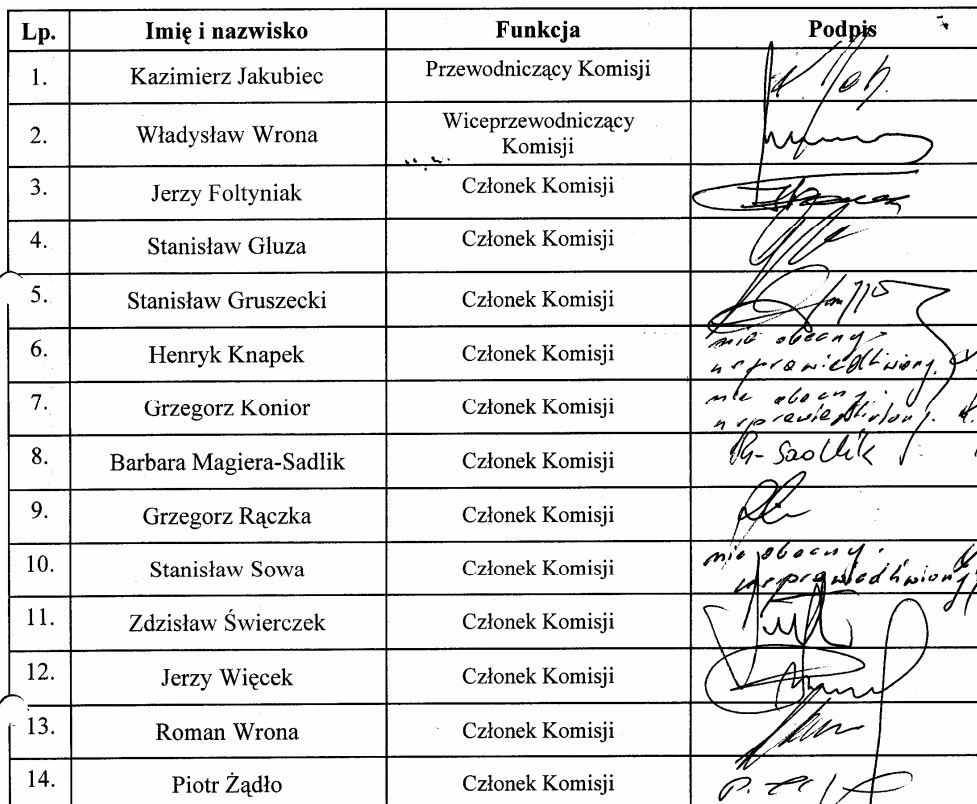 Lp. Imię i nazwisko Funkcja Podpis
1. Kazimierz Jakubiec Przewodniczący Komisji
2. Władysław Wrona Wiceprzewodniczący
Komisji
3. Jerzy Foltyniak Członek Komisji
4. Stanisław Gluza Członek Komisji
5. Stanisław Gruszecki Członek Komisji
6. Henryk Knapek Członek Komisji nie obecny
usprawiedliwiony.
7. Grzegorz Konior Członek Komisji nie obecny.
usprawiedliwiony.
8. Barbara Magiera-Sadlik Członek Komisji Sadlik
9. Grzegorz Rączka Członek Komisji
10. Stanisław Sowa Członek Komisji nie obecny.
usprawiedliwiony
11. Zdzisław Świerczek Członek Komisji
12. Jerzy Więcek Członek Komisji
13. Roman Wrona Członek Komisji
14. Piotr Żądło Członek Komisji